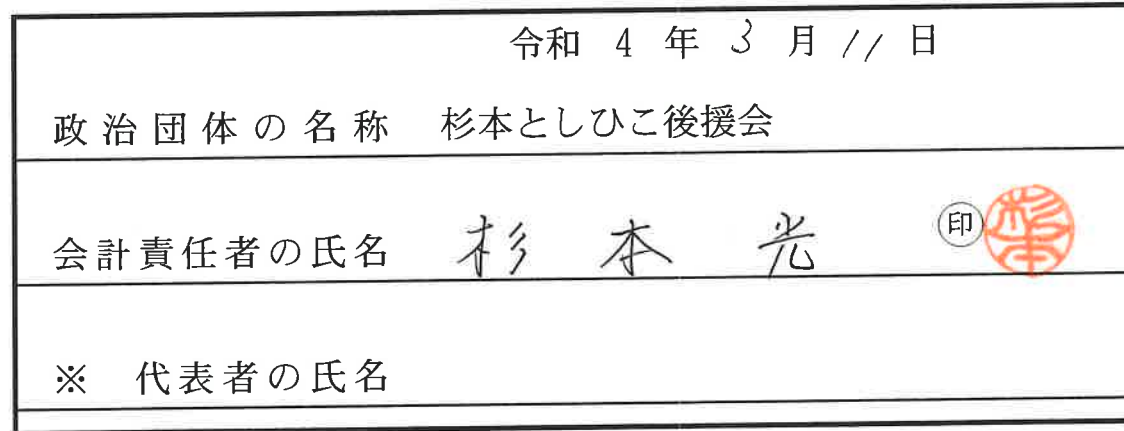 令和 4 年 3 月 11 日
政治団体の名称 杉本としひこ後援会
会計責任者の氏名 杉本 光 印 杉本
※ 代表者の氏名